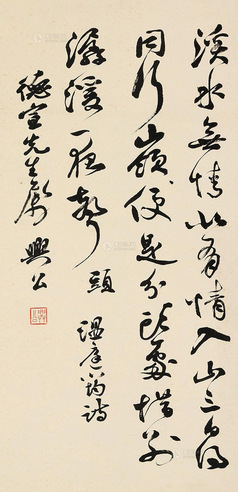 溪水無情似有情入山三日得
同行嶺便是分頭處惜別
潺湲一夜聲 頭 溫庭筠詩
德宣先生屬 興公